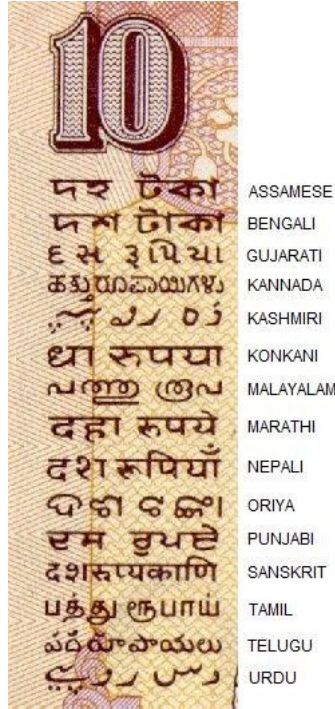 10
দহ টকা ASSAMESE
দশ টাকা BENGALI
દસ રૂપિયા GUJARATI
ಹತ್ತು ರೂಪಾಯಿಗಳು KANNADA
KASHMIRI
धा रुपया KONKANI
പത്തു രൂപ MALAYALAM
दहा रुपये MARATHI
दश रुपियाँ NEPALI
ଦଶ ଟଙ୍କା ORIYA
ਦਸ ਰੁਪਏ PUNJABI
दशरुप्यकाणि SANSKRIT
பத்து ரூபாய் TAMIL
పది రూపాయలు TELUGU
دس روپیے URDU